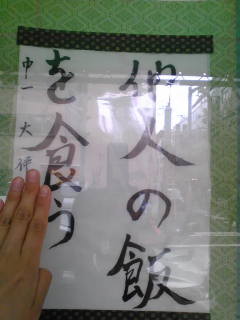 他人の飯
を食う
中一 大